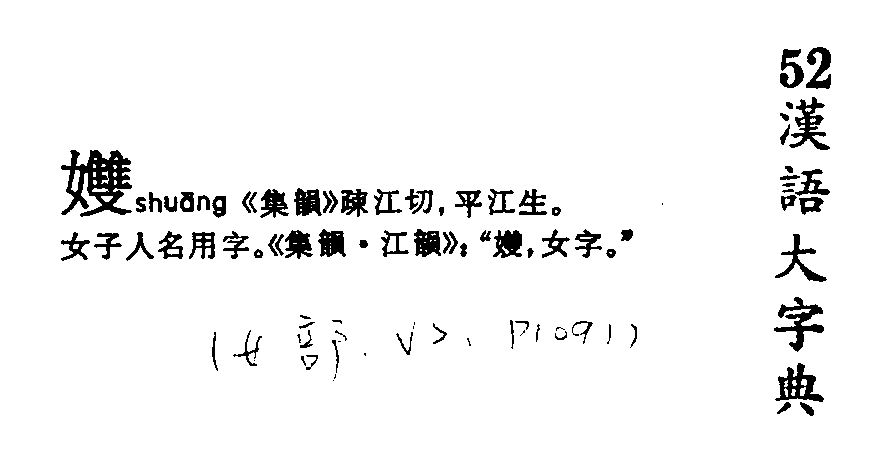 52漢語大字典
孇shuāng《集韻》疎江切,平江生。
女子人名用字。《集韻·江韻》：“孇,女字。”
(女部. V2. P1091)